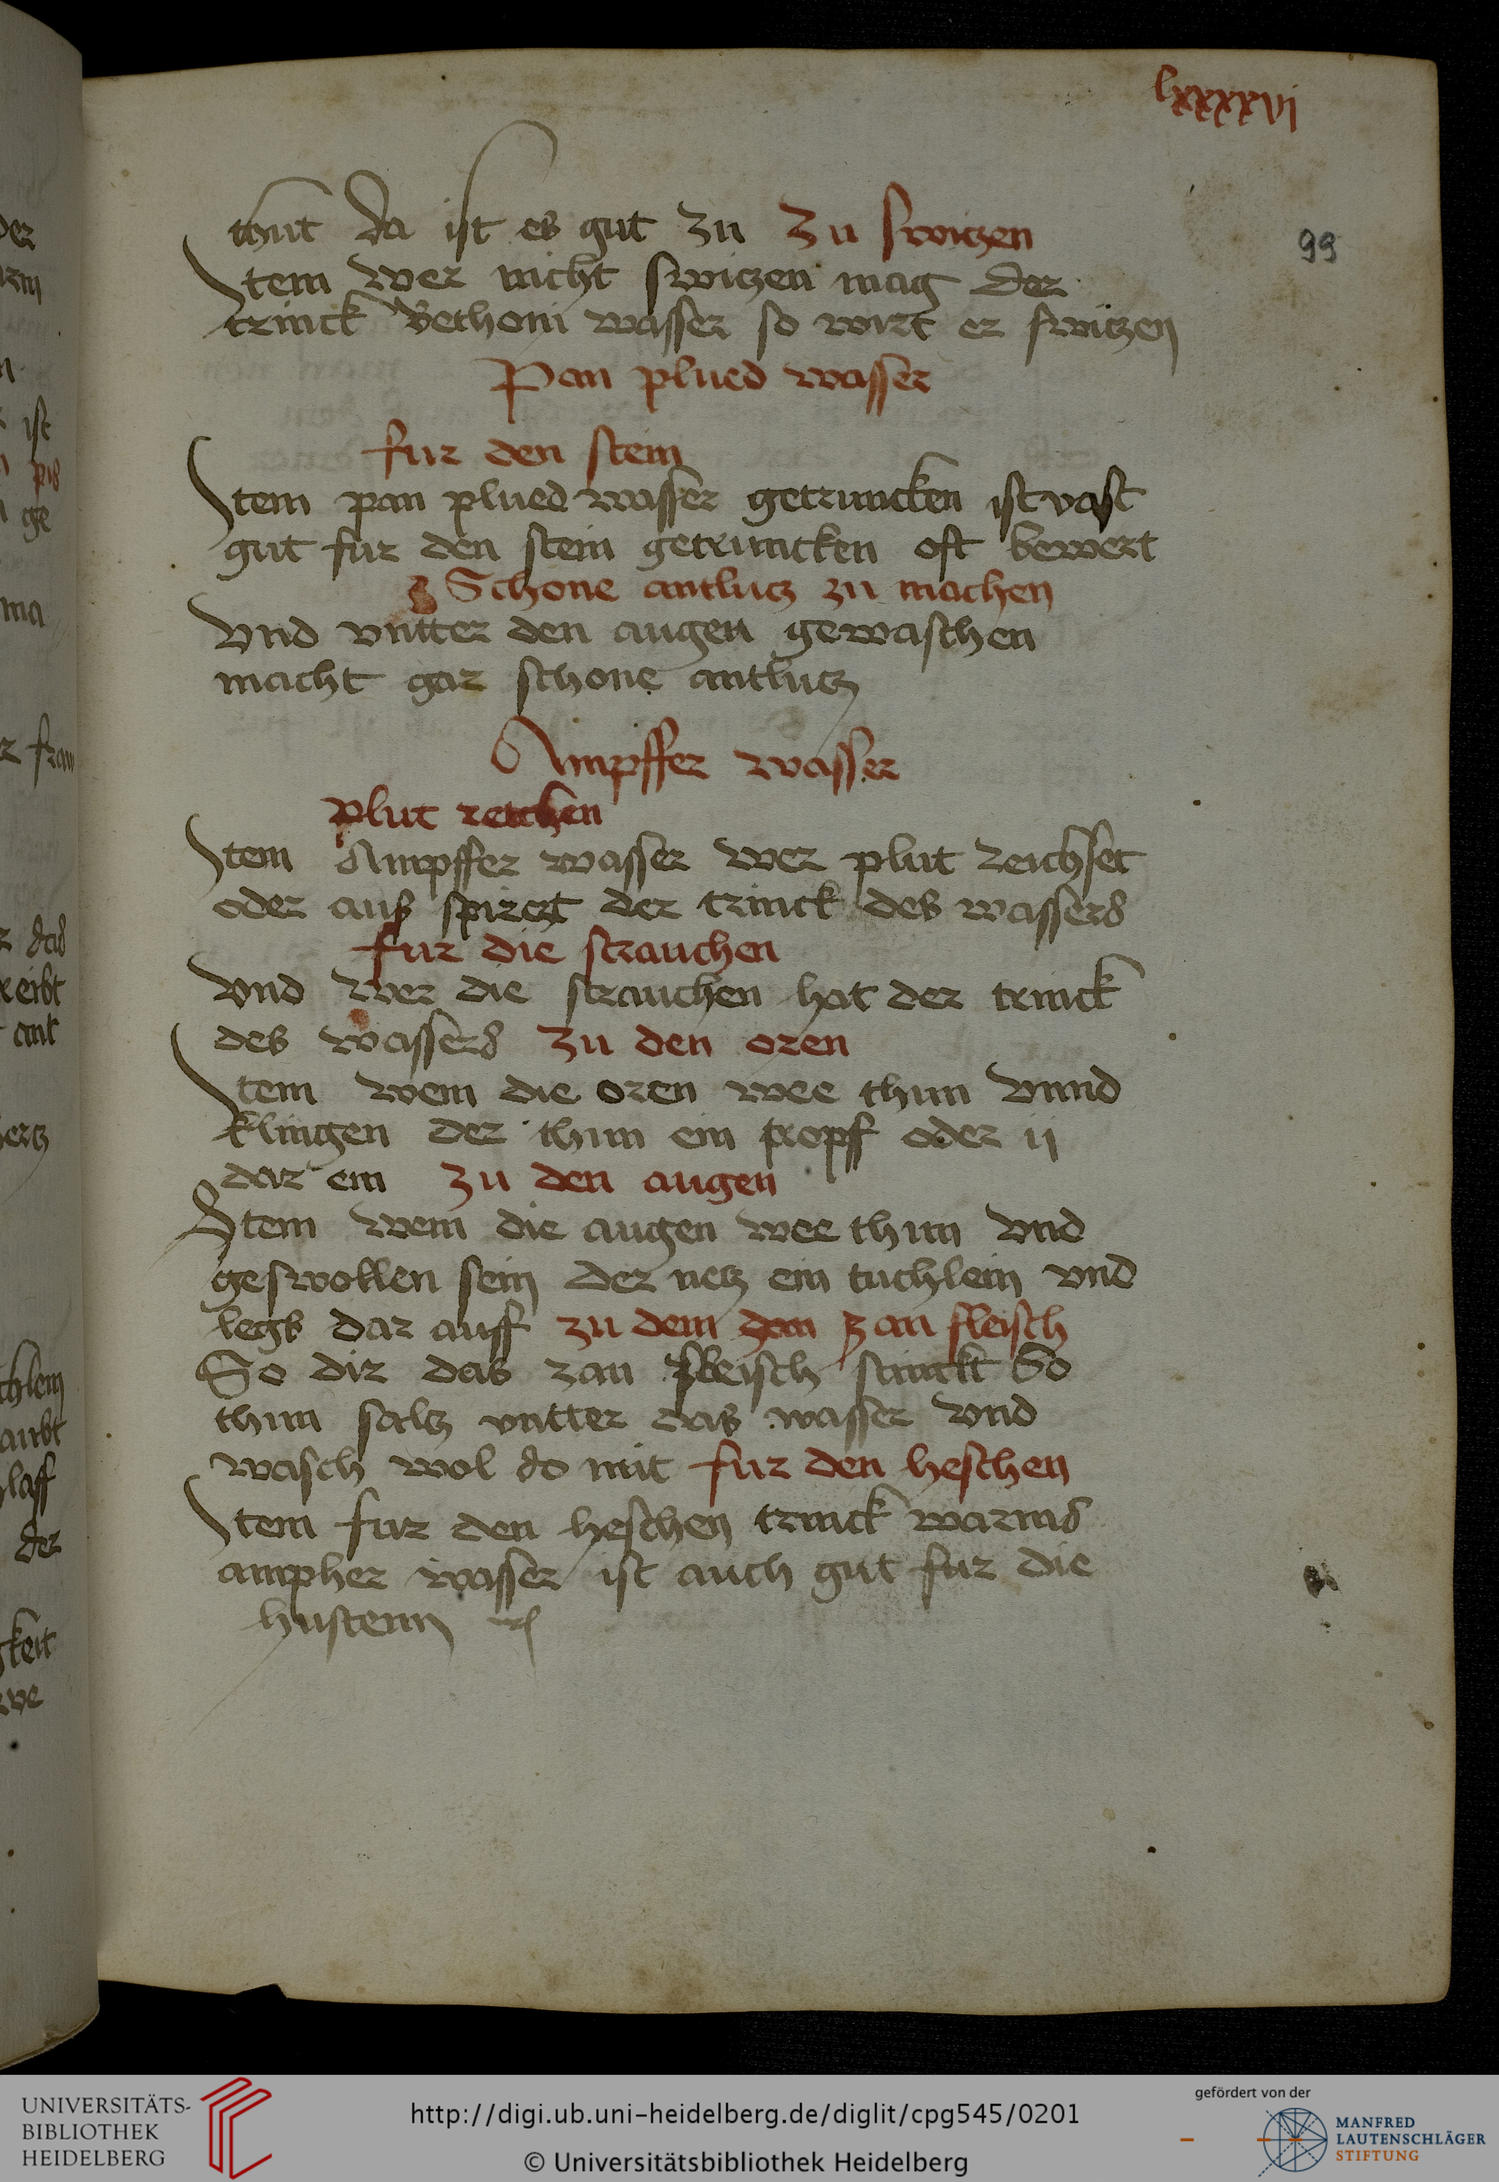 lxxxxvi
99
thut da ist es gut zu zu switzen
Item wer nicht switzen mag der
trinck Bethoni wasser so wirt er switzen
Pan plued wasser
fur den stein
Item pan plued wasser getruncken ist vast
gut fur den stein getruncken oft bewert
Schone antlutz zu machen
Vnd vntter den augen gewaschen
macht gar schone antlutz
Ampffer wasser
plut reichen
Item Ampffer wasser wer plut reichset
oder auß spirczt der trinck des wassers
fur die strauchen
Vnd wer die strauchen hat der trinck
des wassers zu den oren
Item wem die oren wee thun vnnd
klingen der thun ein tropf oder ij
dar ein zu den augen
Item wem die augen wee thun vnd
geswollen sein der netz ein tuchlein vnd
legs dar auff zu dem zan fleisch
So dir das zan fleisch stinckt So
thun saltz vntter das wasser vnd
wasch wol do mit fur den heschen
Item fur den heschen trinck warms
ampher wasser ist auch gut fur die
hustenn
UNIVERSITÄTS-
BIBLIOTHEK
HEIDELBERG
http://digi.ub.uni-heidelberg.de/diglit/cpg545/0201
© Universitätsbibliothek Heidelberg
gefördert von der
MANFRED
LAUTENSCHLÄGER
STIFTUNG